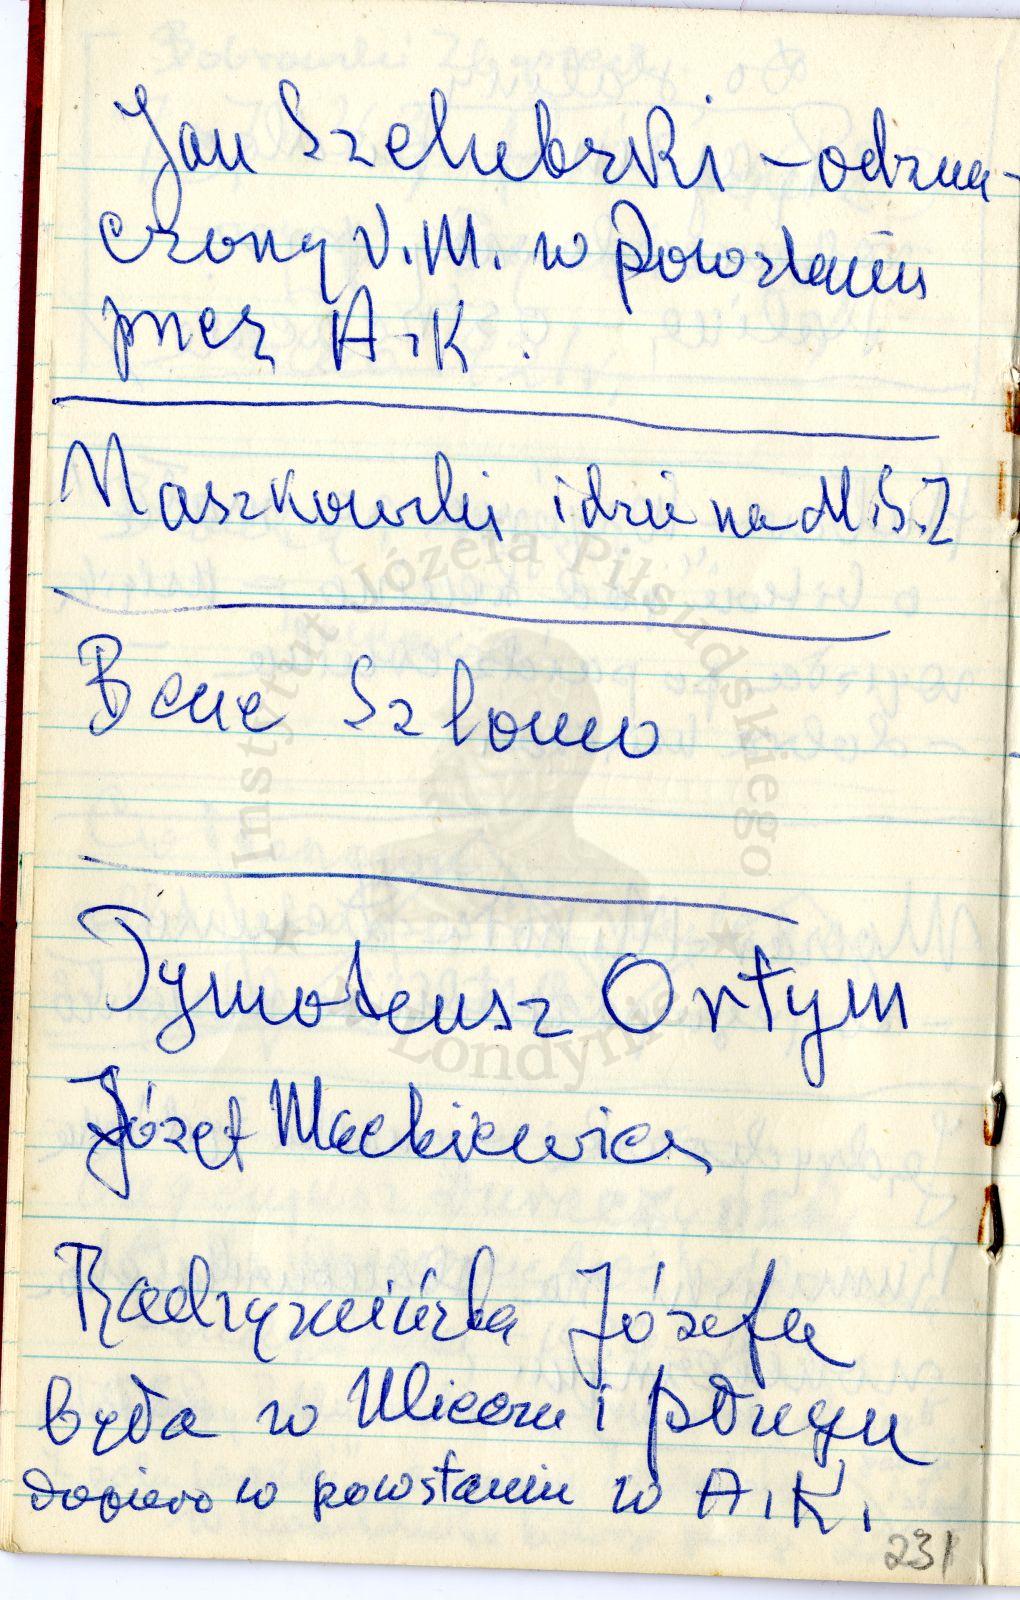 Jan Szelubrski - odzna-
czony V.M. w Powstaniu
przez A.K.
idzie na M.S.Z
Bene Szlomo
Tymoteusz Ortym
Józef Mackiewicz
Radzymińska Józefa
była w Mieczu i pługu
dopiero w powstaniu w A.K.
231
Instytut Józefa Piłsudskiego
Londyn